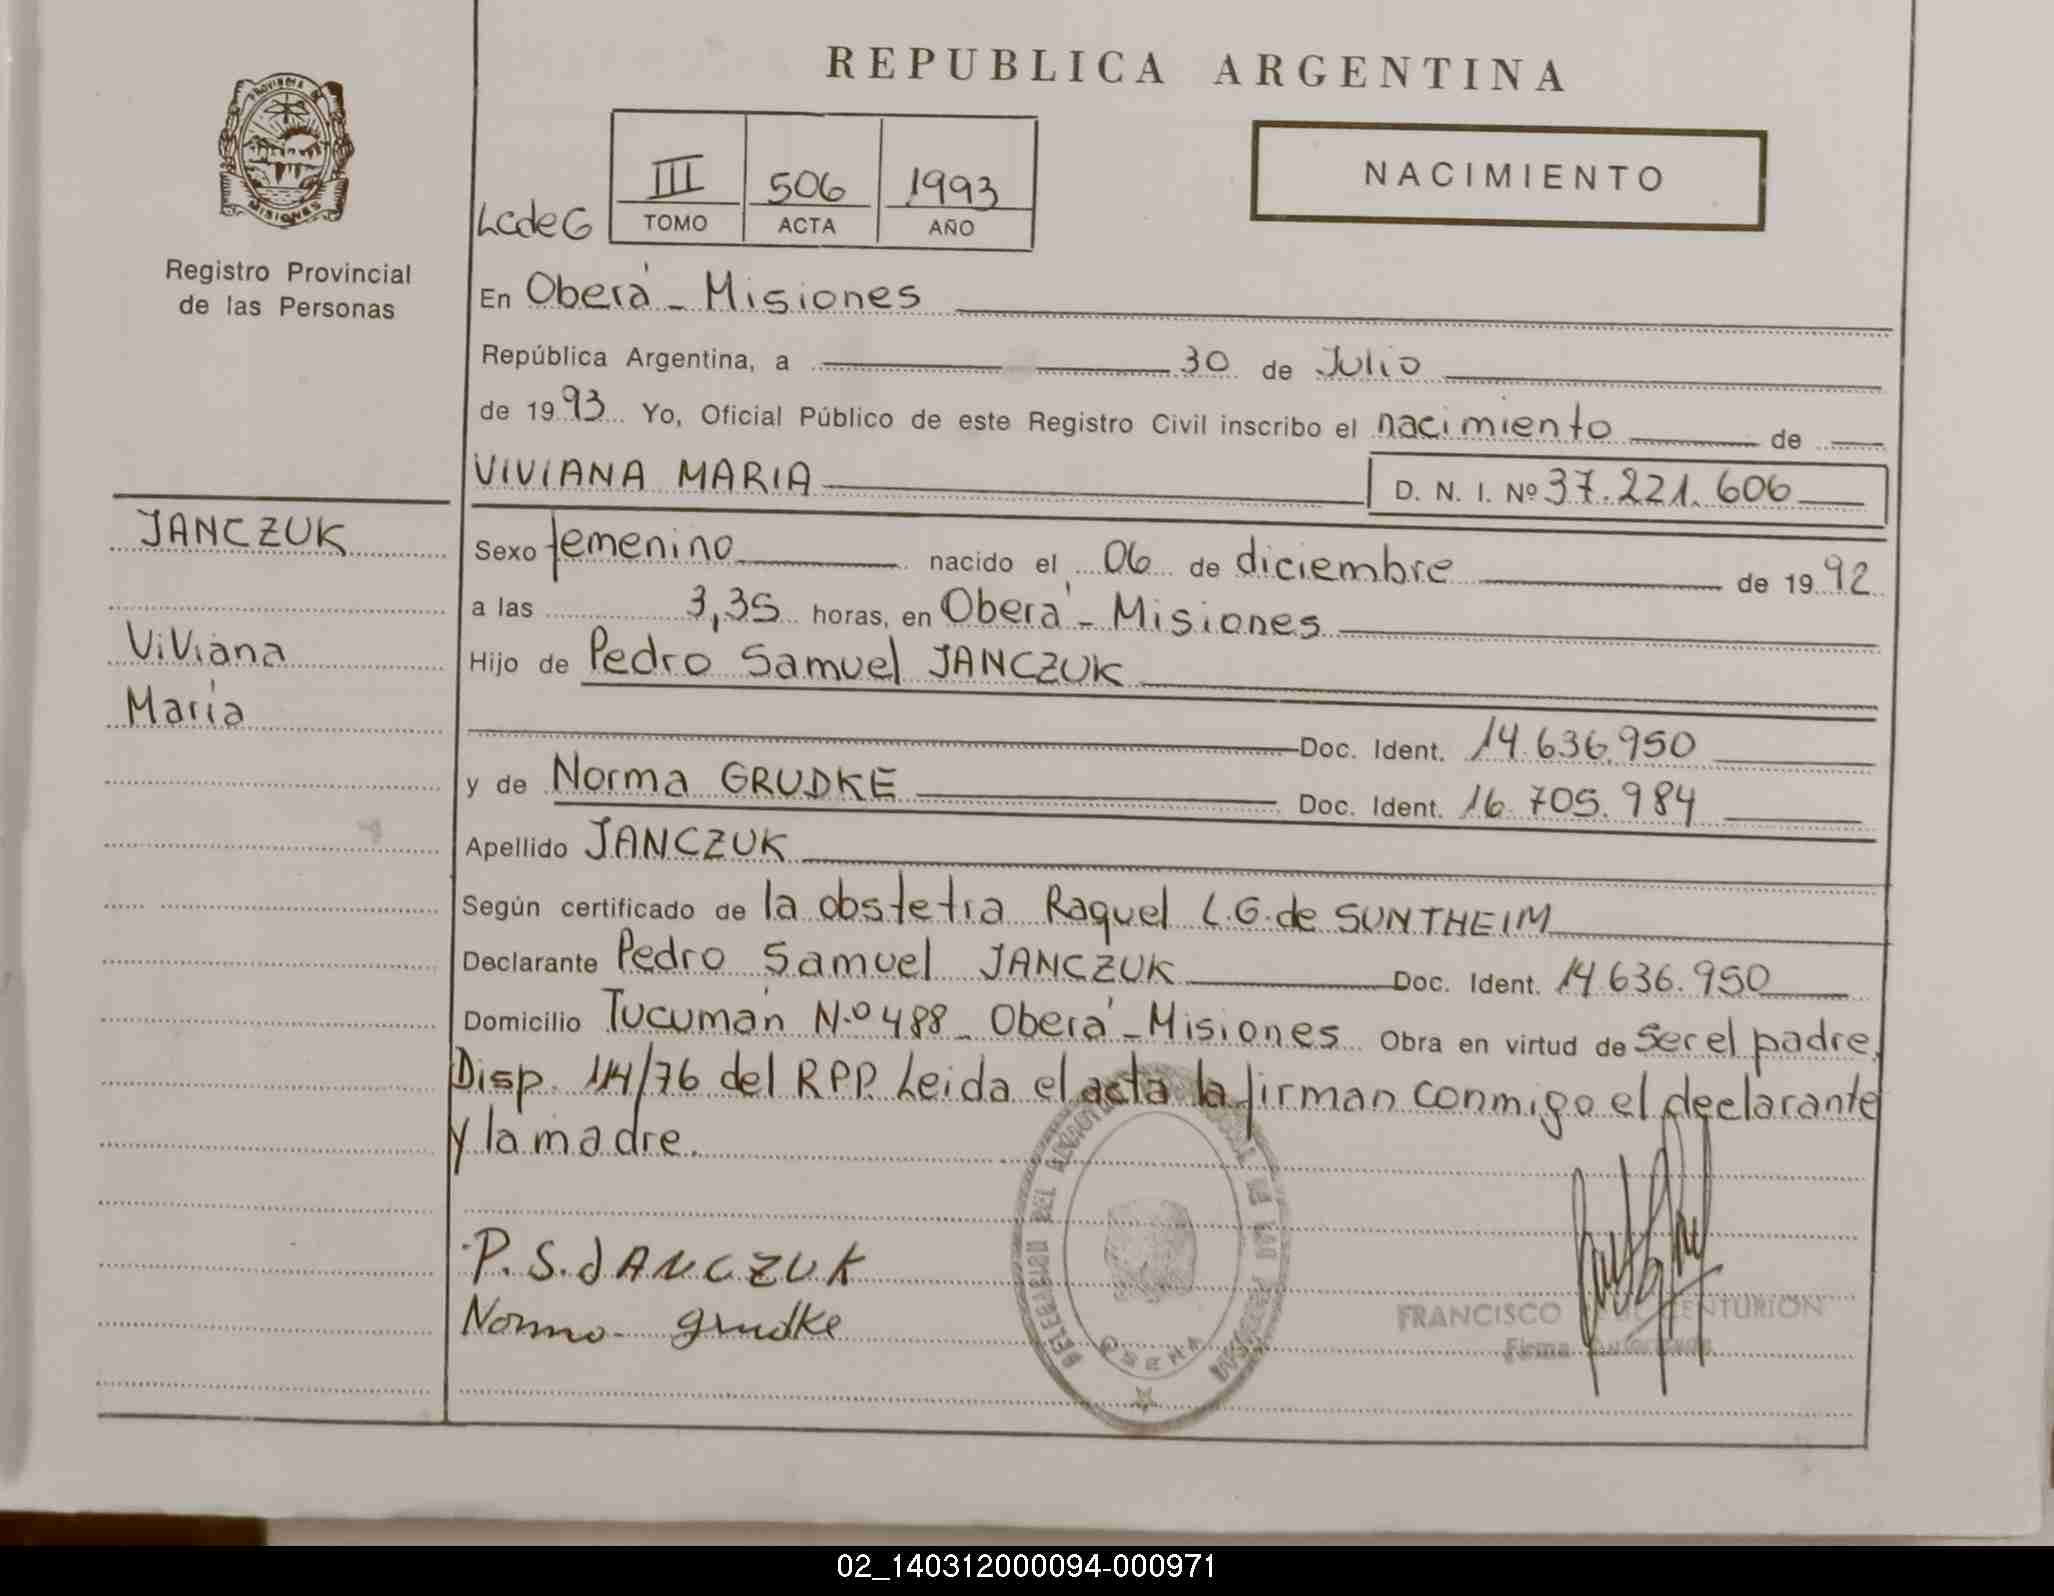 REPUBLICA ARGENTINA
PROVINCIA DE
MISIONES
Registro Provincial
de las Personas
NACIMIENTO
LcdeG
III 506 1993
TOMO ACTA AÑO
En Oberá - Misiones
República Argentina, a 30 de Julio
de 1993 Yo, Oficial Público de este Registro Civil inscribo el nacimiento de
VIVIANA MARIA D. N. I. Nº 37.221.606
JANCZUK
Viviana
María
Sexo femenino nacido el 06 de diciembre de 1992
a las 3,35 horas, en Oberá - Misiones
Hijo de Pedro Samuel JANCZUK
Doc. Ident. 14.636.950
y de Norma GRUDKE Doc. Ident. 16.705.984
Apellido JANCZUK
Según certificado de la obstetra Raquel L.G. de SUNTHEIM
Declarante Pedro Samuel JANCZUK Doc. Ident. 14.636.950
Domicilio Tucumán N.º 488 - Oberá - Misiones Obra en virtud de ser el padre,
Disp. 114/76 del RPP. Leida el acta la firman conmigo el declarante
y la madre.
P. S. JANCZUK
Norma grudke
DELEGACION DEL REGISTRO DE LAS PERSONAS
OBERA
FRANCISCO CENTURION
Firma Autorizada
02_140312000094-000971